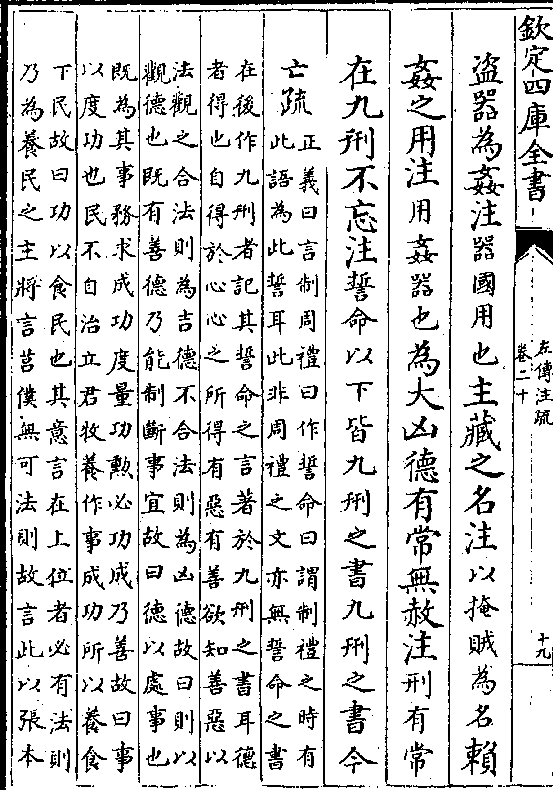 欽定四庫全書
左傳注疏
卷二十
十九
盜器為姦注器國用也主藏之名注以掩賊為名賴
姦之用注用姦器也為大凶德有常無赦注刑有常
在九刑不忘注誓命以下皆九刑之書九刑之書今
亡疏正義曰言制周禮曰作誓命曰謂制禮之時有
此語為此誓耳此非周禮之文亦無誓命之書
在後作九刑者記其誓命之言著於九刑之書耳德
者得也自得於心心之所得有惡有善欲知善惡以
法觀之合法則為吉德不合法則為凶德故曰則以
觀德也既有善德乃能制斷事宜故曰德以處事也
既為其事務求成功度量功勲必功成乃善故曰事
以度功也民不自治立君牧養作事成功所以養食
下民故曰功以食民也其意言在上位者必有法則
乃為養民之主將言莒僕無可法則故言此以張本